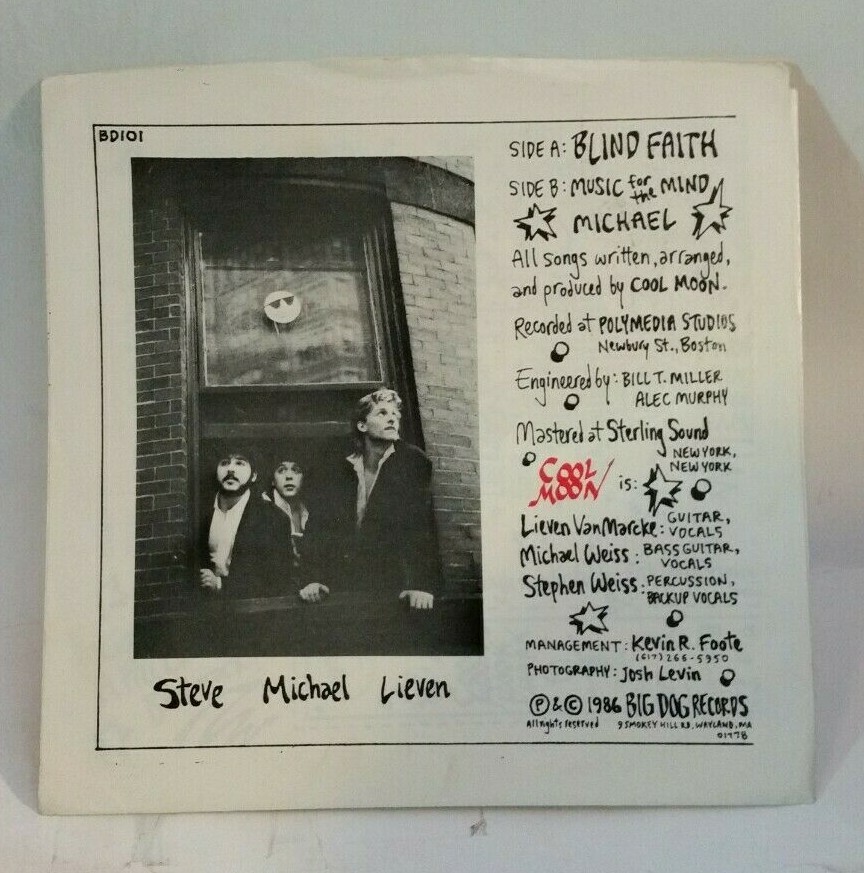 BD101
SIDE A: BLIND FAITH
SIDE B: MUSIC for the MIND
MICHAEL
All songs written, arranged,
and produced by COOL MOON.
Recorded at POLYMEDIA STUDIOS
Newbury St., Boston
Engineered by: BILL T. MILLER
ALEC MURPHY
Mastered at Sterling Sound
NEW YORK,
NEW YORK
COOL
MOON
is:
Lieven VanMarcke: GUITAR,
VOCALS
Michael Weiss: BASS GUITAR,
VOCALS
Stephen Weiss: PERCUSSION,
BACKUP VOCALS
MANAGEMENT: Kevin R. Foote
(617) 266-5950
PHOTOGRAPHY: Josh Levin
Ⓟ & © 1986 BIG DOG RECORDS
All rights reserved 9 SMOKEY HILL RD, WAYLAND, MA
01778
Steve Michael Lieven